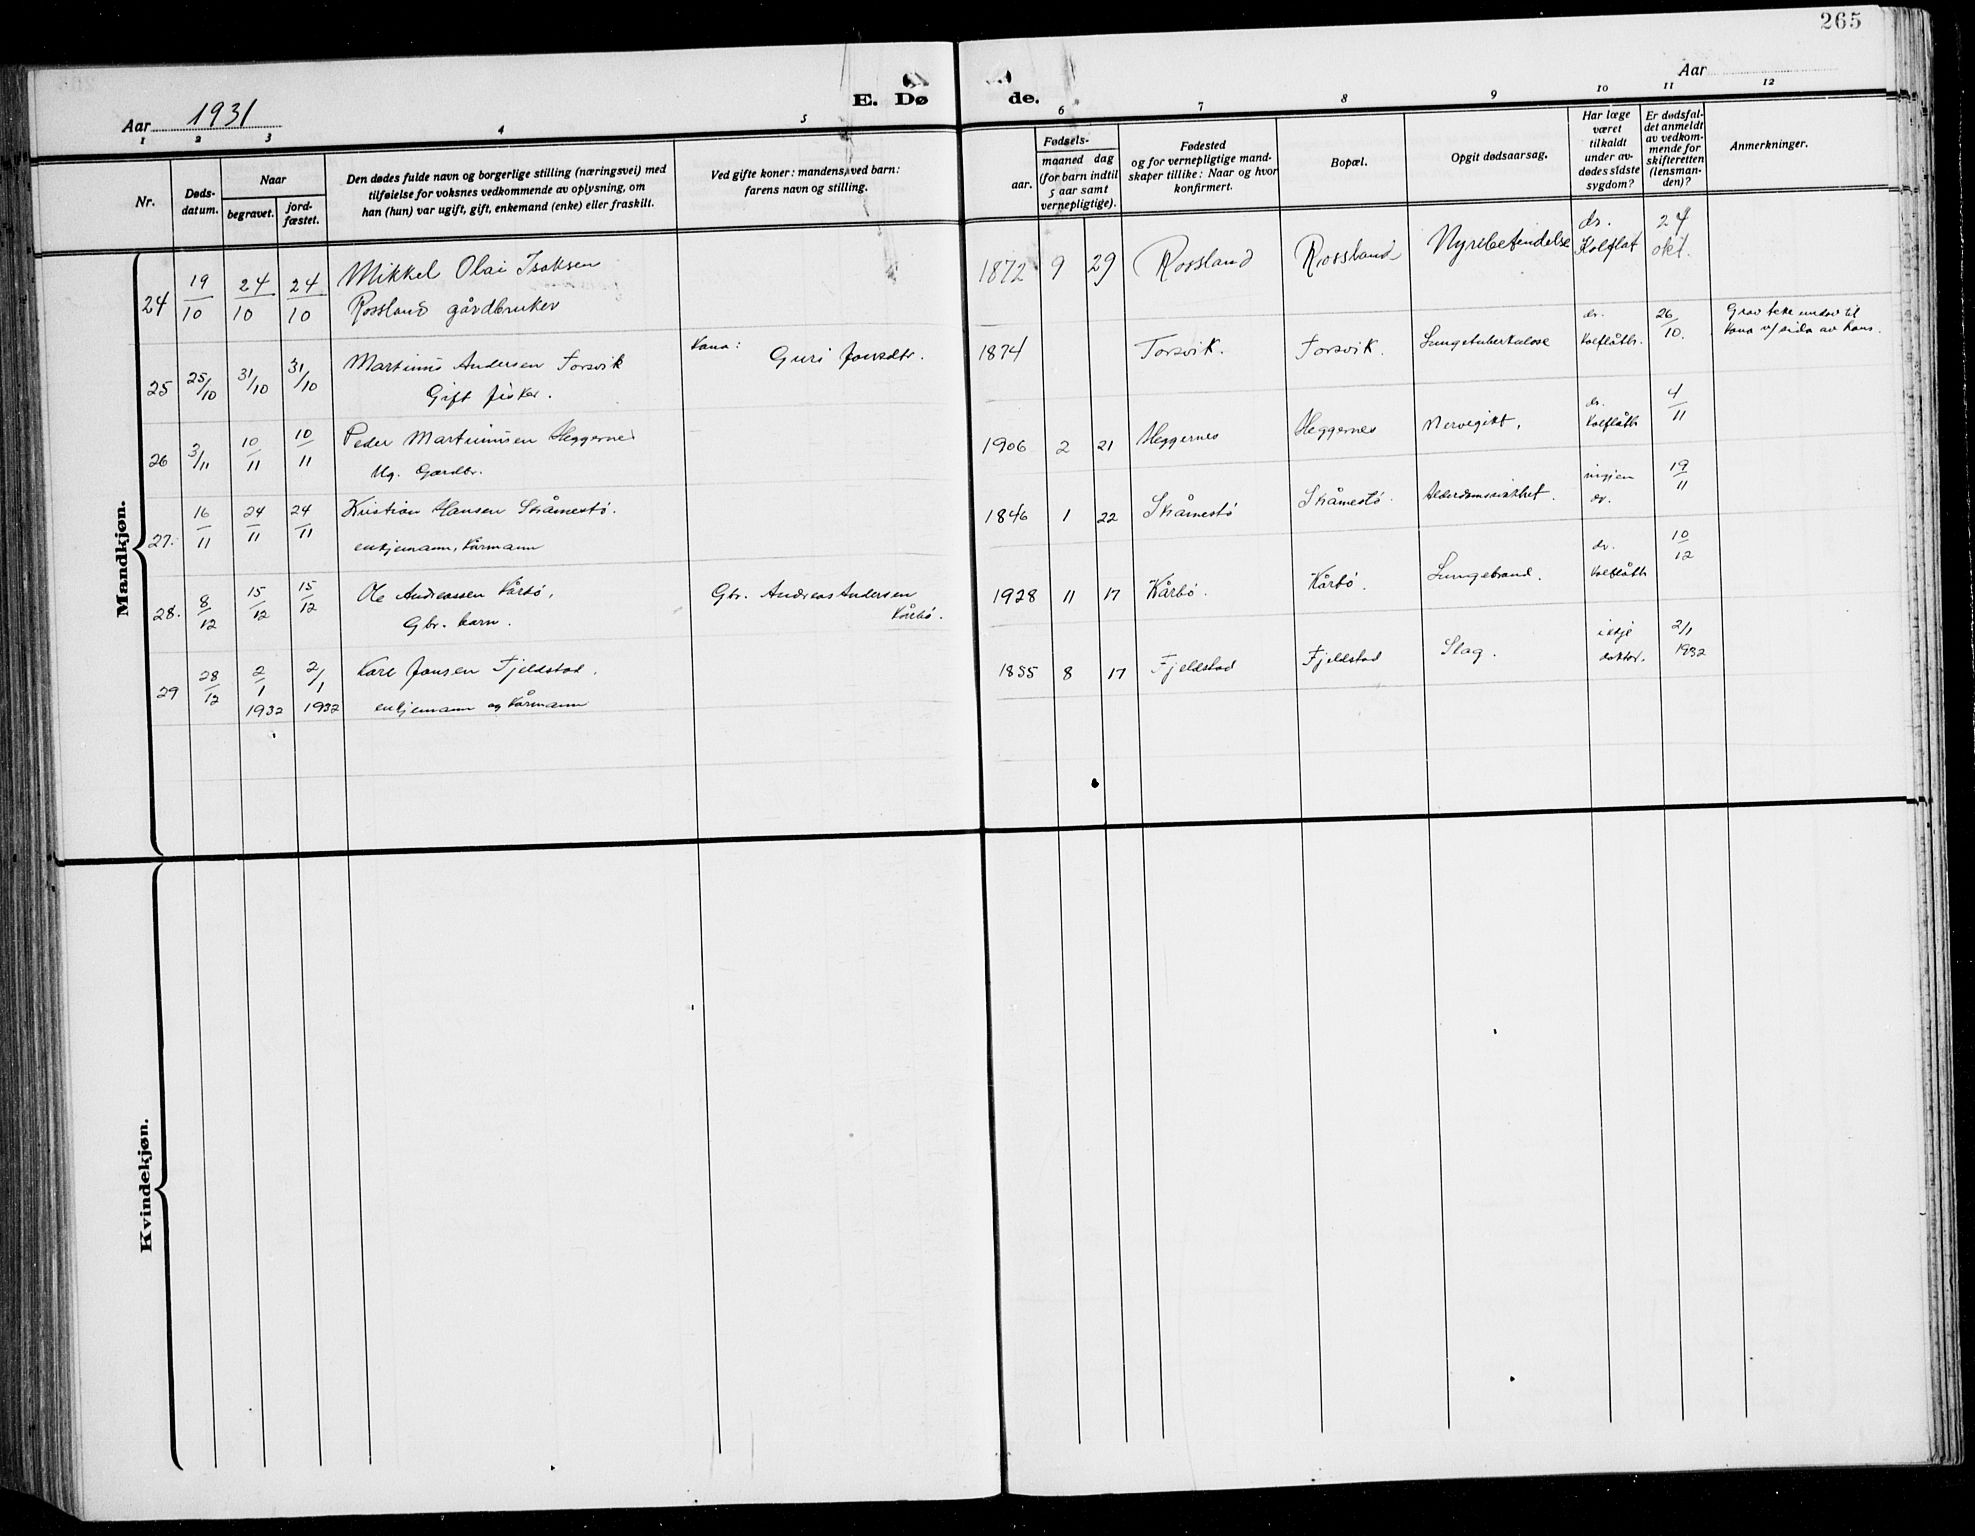 265
Aar 1931
E. Døde.
Aar
1 2 3 4 5 6 7 8 9 10 11 12
Nr.
Døds-
datum.
Naar
begravet.
jord-
fæstet.
Den dødes fulde navn og borgerlige stilling (næringsvei) med
tilføielse for voksnes vedkommende av oplysning, om
han (hun) var ugift, gift, enkemand (enke) eller fraskilt.
Ved gifte koner: mandens, ved barn:
farens navn og stilling.
Fødsels-
aar.
maaned dag
(for barn indtil
5 aar samt
vernepligtige).
Fødested
og for vernepligtige mand-
skaper tillike: Naar og hvor
konfirmert.
Bopæl.
Opgit dødsaarsag.
Har læge
været
tilkaldt
under av-
dødes sidste
sygdom?
Er dødsfal-
det anmeldt
av vedkom-
mende for
skifteretten
(lensman-
den)?
Anmerkninger.
Mandkjøn.
24 19/10 24/10 24/10 Mikkel Olai Isaksen
Rossland gårdbruker
1872 9 29 Rossland Rossland Nyrebetendelse dr. Kolflåt 24 okt.
25 25/10 31/10 31/10 Martinus Andersen Torsvik
Gift fisker.
Kona: Guri Jonsdtr.
1874 Torsvik. Torsvik. Lungetuberkulose dr. Kolflåth. 26/10.
Kona v/ sida av hans.
26 3/11 10/11 10/11 Peder Martinusen Heggernes
Ug. Gardbr.
1906 2 21 Heggernes Heggernes Nervegikt. dr. Kolflåth 4/11
27. 16/11 24/11 24/11 Kristian Hansen Skåmestø.
enkjemann, kårmann
1846 1 22 Skåmestø Skåmestø. Alderdomssvakhet. ingjen dr. 19/11
28. 8/12 15/12 15/12 Ole Andreassen Kårbø,
Gbr. barn.
Gbr. Andreas Andersen
Kårbø.
1928 11 17 Kårbø. Kårbø. Lungebrand. dr. Kolflåth 10/12
29 28/12 2/1 1932 2/1 1932 Karl Jonsen Fjeldstad.
enkjemann og kårmann
1855 8 17 Fjeldstad Fjeldstad Slag. ikkje doktor. 2/1 1932
Kvindekjøn.